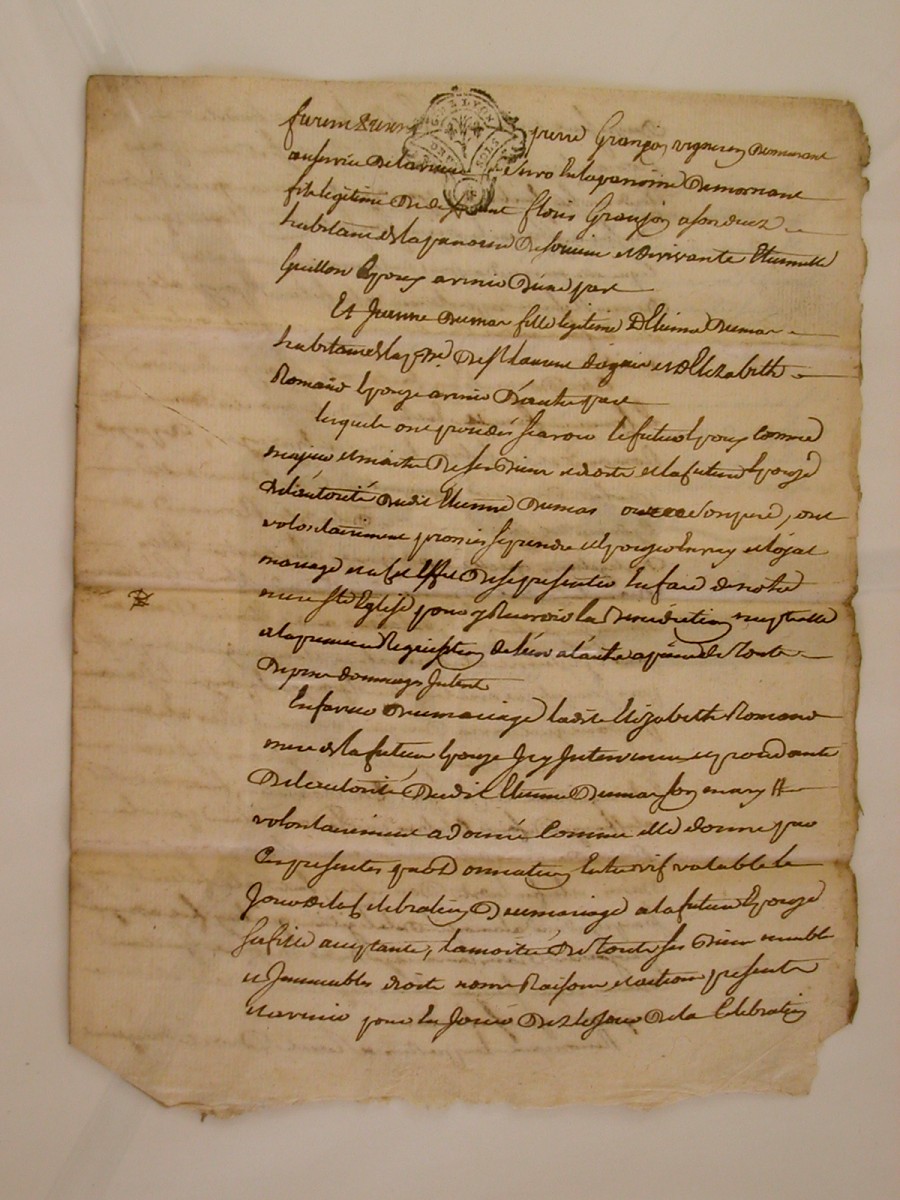 furent present pierre Granjon vigneron demeurant
au service de la veuve de la paroisse de mornant
fils legitime de defunt fleuri Granjon a son deces
habitant de la paroisse de et de vivante Etiennette
Guillon Epoux a venir d'une part
Et Jeanne dumas fille legitime d'Etienne dumas
habitant de la psse de st laurent d'agnin et d'Elizabeth
Romano Epouze a venir d'autre part
lesquels ont procedés scavoir le futur Epoux comme
majeur et maitre de ses biens et droits et la future Epouze
de l'autorité dudit Etienne dumas son pere, ont
volontairement promis se prendre et Epouzer En vray et loyal
mariage et a cet Effet de se presenter En face de notre
mere ste Eglise pour y Recevoir la benediction nuptialle
a la premiere Requisition de l'un a l'autre a peine de Toute
depens dommages Interets
En faveur du mariage ladite Elizabeth Romano
mere de la future Epouze Icy Intervenue et procedante
de l'autorité dudit Etienne dumas son mary a
volontairement a donné Comme elle donne par
Ces presentes par donnation Entre vifs valable le
Jour de la Celebration du mariage a la future Epouze
sa fille acceptante, la moitié de Toute ses biens meubles
et Immeubles droits noms Raisons et actions presents
et a venir pour En Jouir dez le Jour de la Celebration